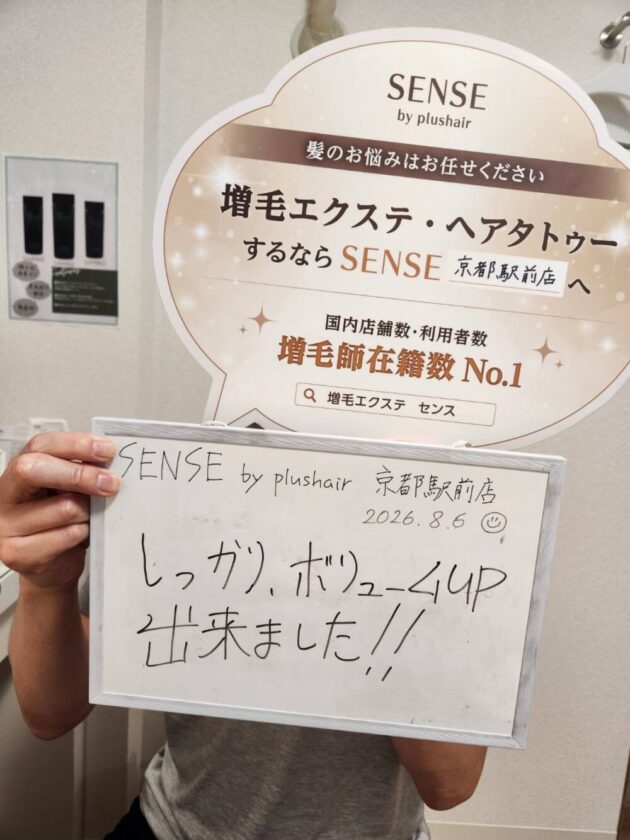 SENSE
by plushair
髪のお悩みはお任せください
増毛エクステ・ヘアタトゥー
するなら SENSE 京都駅前店 へ
国内店舗数・利用者数
増毛師在籍数 No.1
増毛エクステ センス
SENSE by plushair 京都駅前店
2026.8.6
しっかり、ボリュームUP
出来ました!!